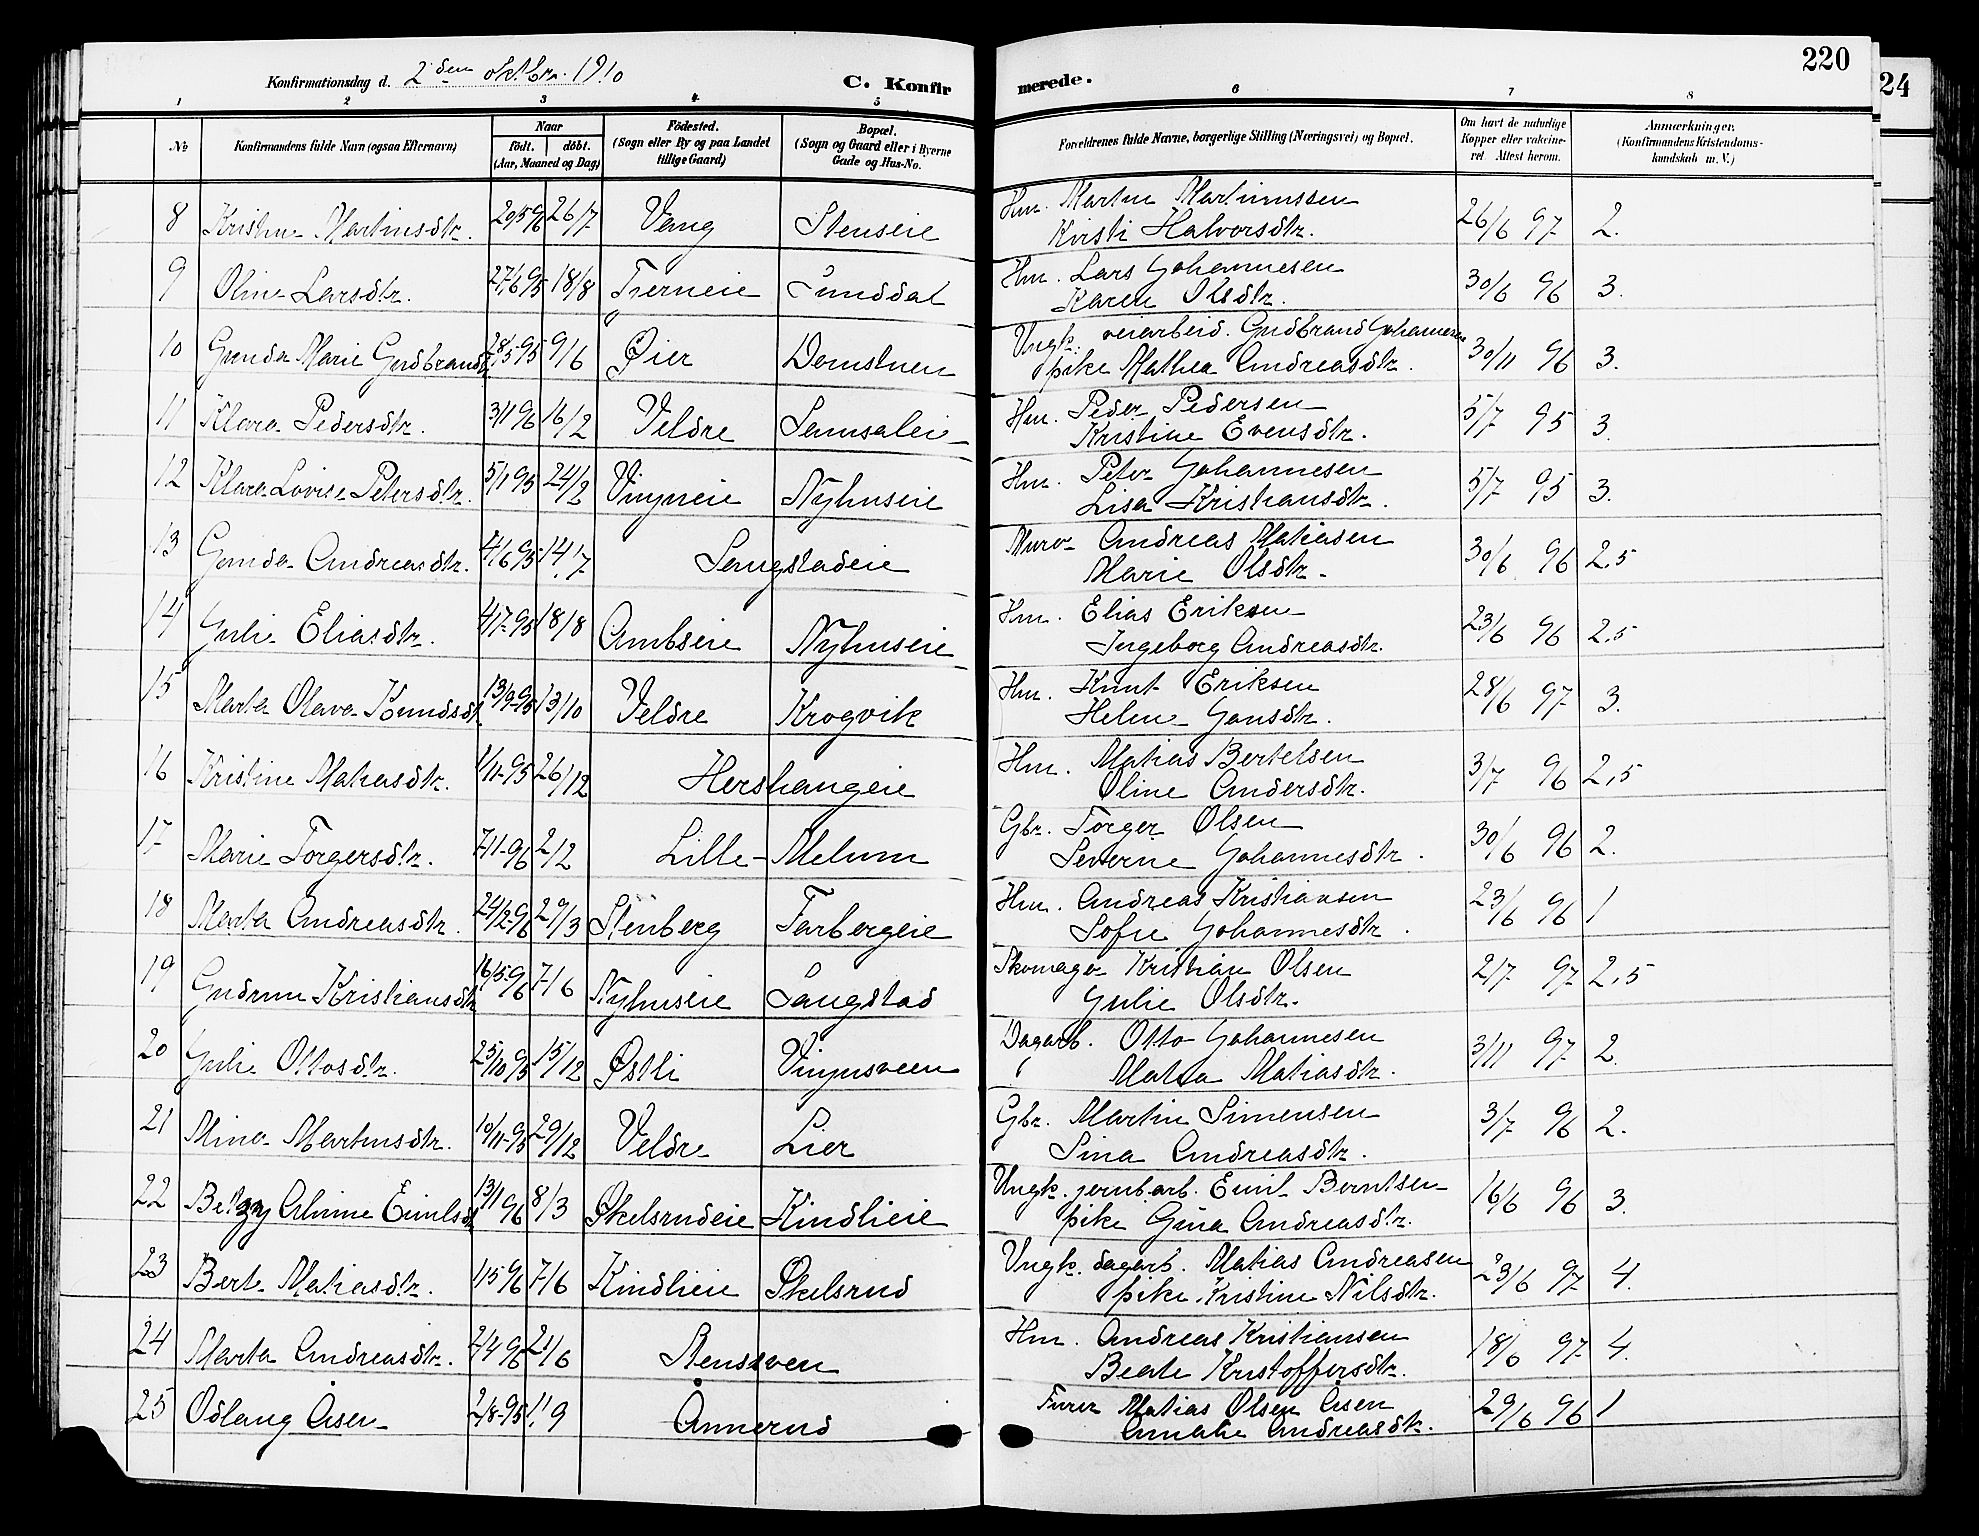 220
24
Konfirmationsdag d. 2den oktbr. 1910
C. Konfirmerede.
1 2 3 4 5 6 7 8
No Konfirmandens fulde Navn (ogsaa Efternavn) Naar født. døbt. (Aar, Maaned og Dag) Fødested. (Sogn eller By og paa Landet tillige Gaard) Bopæl. (Sogn og Gaard eller i Byerne Gade og Hus-No. Forældrenes fulde Navne, borgerlige Stilling (Næringsvei) og Bopæl. Om havt de naturlige Kopper eller vakcineret Attest herom. Anmærkninger. (Konfirmandens Kristendomskundskab m. V.)
8 Kristine Martinsdtr. 20/5 96 26/7 Vang Stenseie Hm. Martin Martinussen 26/6 97 2.
Kirsti Halvorsdtr.
9 Oline Larsdtr. 27/6 95 18/8 Tjerneie Sunddal Hm. Lars Johannesen 30/6 96 3.
Karen Olsdtr.
10 Gunda Marie Gudbrandsd. 28/5-95 9/6 Øier Domstuen Ungk. veiarbeid. Gudbrand Johannesen 30/11 96 3.
pike Mathea Andreasdtr.
11 Klara Pedersdtr. 3/1 96 16/2 Veldre Samsalei Hm. Peder Pedersen 5/7 95 3.
Kristine Evensdtr.
12 Klara Lovise Petersdtr. 5/1 95 24/2 Vingneie Nyhuseie Hm. Peter Johannesen 5/7 95 3.
Lisa Kristiansdtr.
13 Gunda Andreasdtr. 4/6 95 14/7 Sangstadeie Murer Andreas Matiasen 30/6 96 2,5
Marie Olsdtr.
14 Julie Eliasdtr. 4/7-95 18/8 Ambseie Nyhuseie Hm. Elias Eriksen 23/6 96 2,5
Ingeborg Andreasdtr.
15 Marta Olava Knudsdt. 13/9-95 13/10 Veldre Krogvik Hm. Knut Eriksen 28/6 97 3.
Helene Jansdtr.
16 Kristine Matiasdtr. 1/11-95 26/12 Hershaugeie Hm. Matias Bertelsen 3/7 96 2,5
Oline Andersdtr.
17 Marie Torgersdtr. 7/1-96 2/2 Lille-Melum Gbr. Torger Olsen 30/6 96 2.
Severine Johannesdtr.
18 Marta Andreasdtr. 24/2-96 29/3 Stenberg Farbergeie Hm. Andreas Kristiansen 23/6 96 1
Sofie Johannesdtr.
19 Gudrun Kristiansdtr 16/5-96 7/6 Nyhuseie Sangstad Skomager Kristian Olsen 2/7 97 2,5
Julie Olsdtr.
20 Julie Ottosdtr. 25/10 95 15/12 Østli Vingnsveen Dagarb. Otto Johannesen 3/11 97 2.
Matea Matiasdtr.
21 Mina Martinsdtr. 10/11-95 29/12 Veldre Lier Gbr. Martin Simensen 3/7 96 2.
Sina Andreasdtr.
22 Betzy Alvine Emilsdt 13/1 96 8/3 Skelsrudeie Kindlieie Ungk. jernb.arb. Emil Berntsen 16/6 96 3.
pike Gina Andreasdtr.
23 Berte Matiasdtr. 1/5 96 7/6 Kindlieie Skelsrud Ungk. dagarb. Matias Andreasen 23/6 97 4.
pike Kristine Nilsdtr.
24 Marta Andreasdtr. 7/4 96 21/6 Stensveen Hm. Andreas Kristiansen 18/6 97 4.
Beate Kristoffersdtr.
25 Odlaug Åsen 2/8-95 1/9 Ånnerud Furer Matias Olsen Åsen 29/6 96 1
Amalie Andreasdtr.